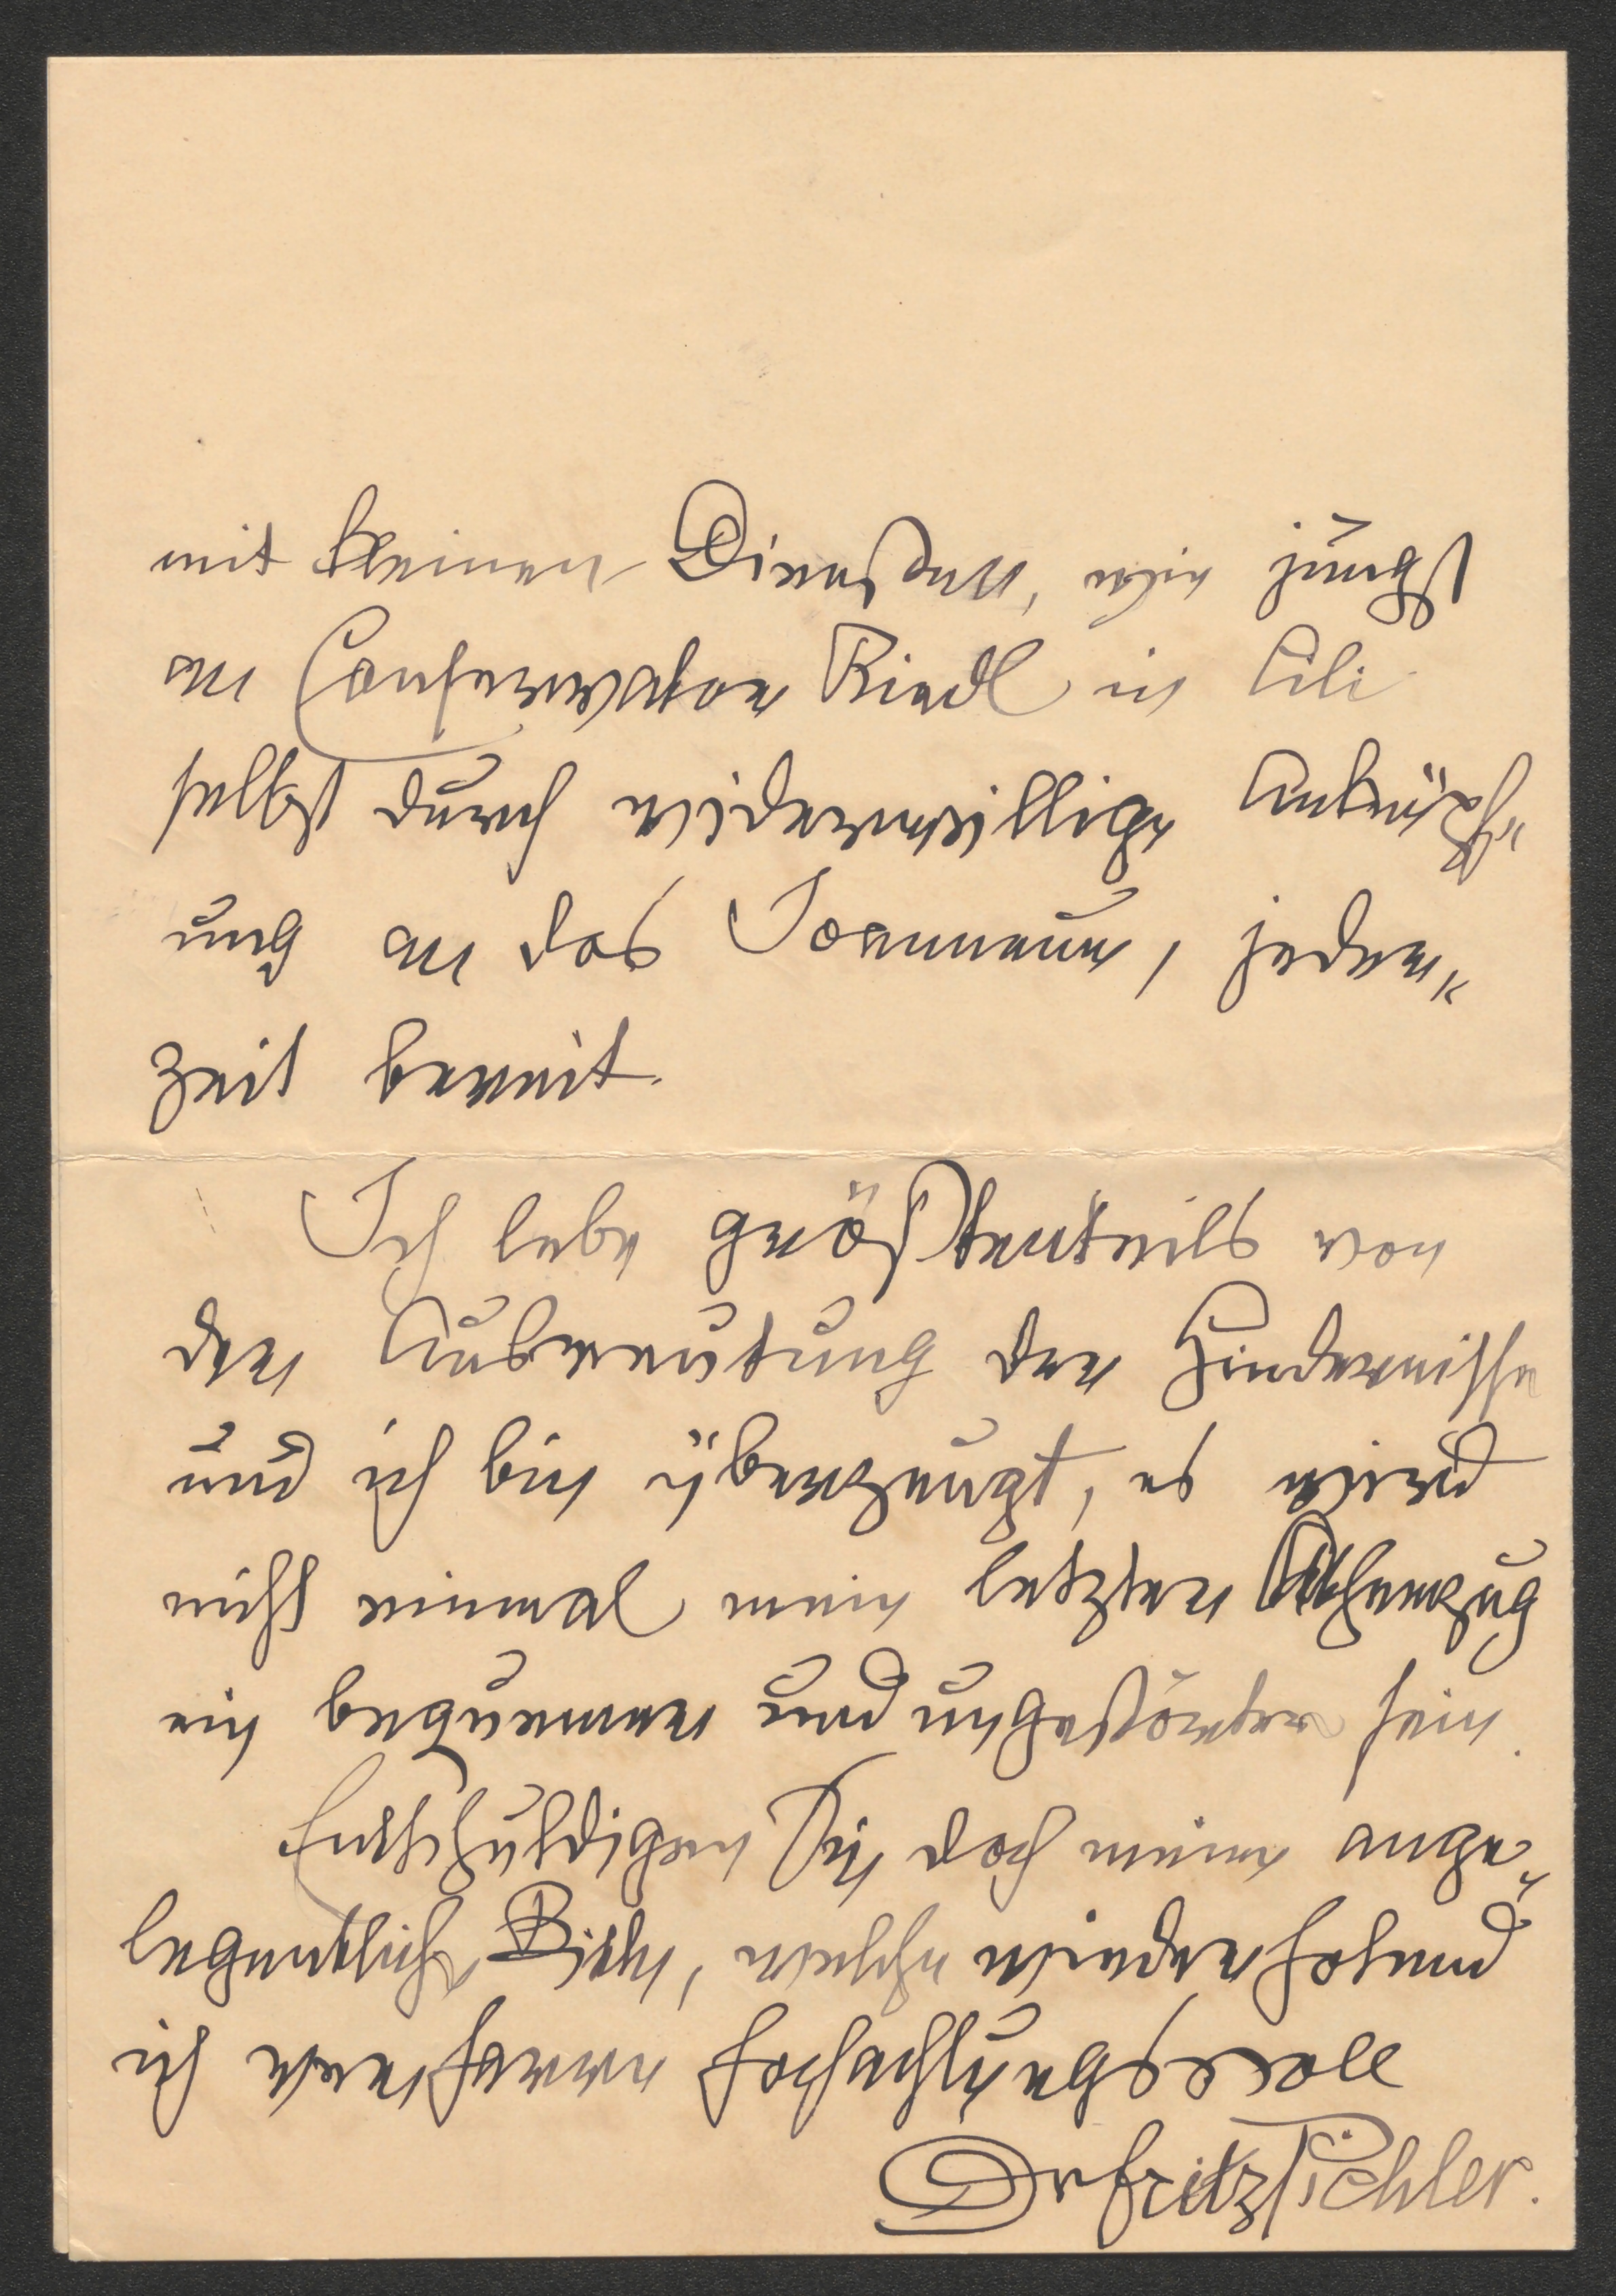 mit kleinen Diensten, wie jüngst
an Conservator Riedl in Cili
selbst durch wiederwillige Anknüpf„
ung an das Joanneum, jeder„
zeit bereit.
Ich lebe größtenteils von
der Ausreutung der Hindernisse
und ich bin überzeugt, es wird
nicht einmal mein letzter Athemzug
ein bequemer und ungestörter sein.
Entschuldigen Sie doch meine ange„
legentliche Bitte, welche wiederholend
ich verharre hochachtungsvoll
Dr Fritz Pichler.